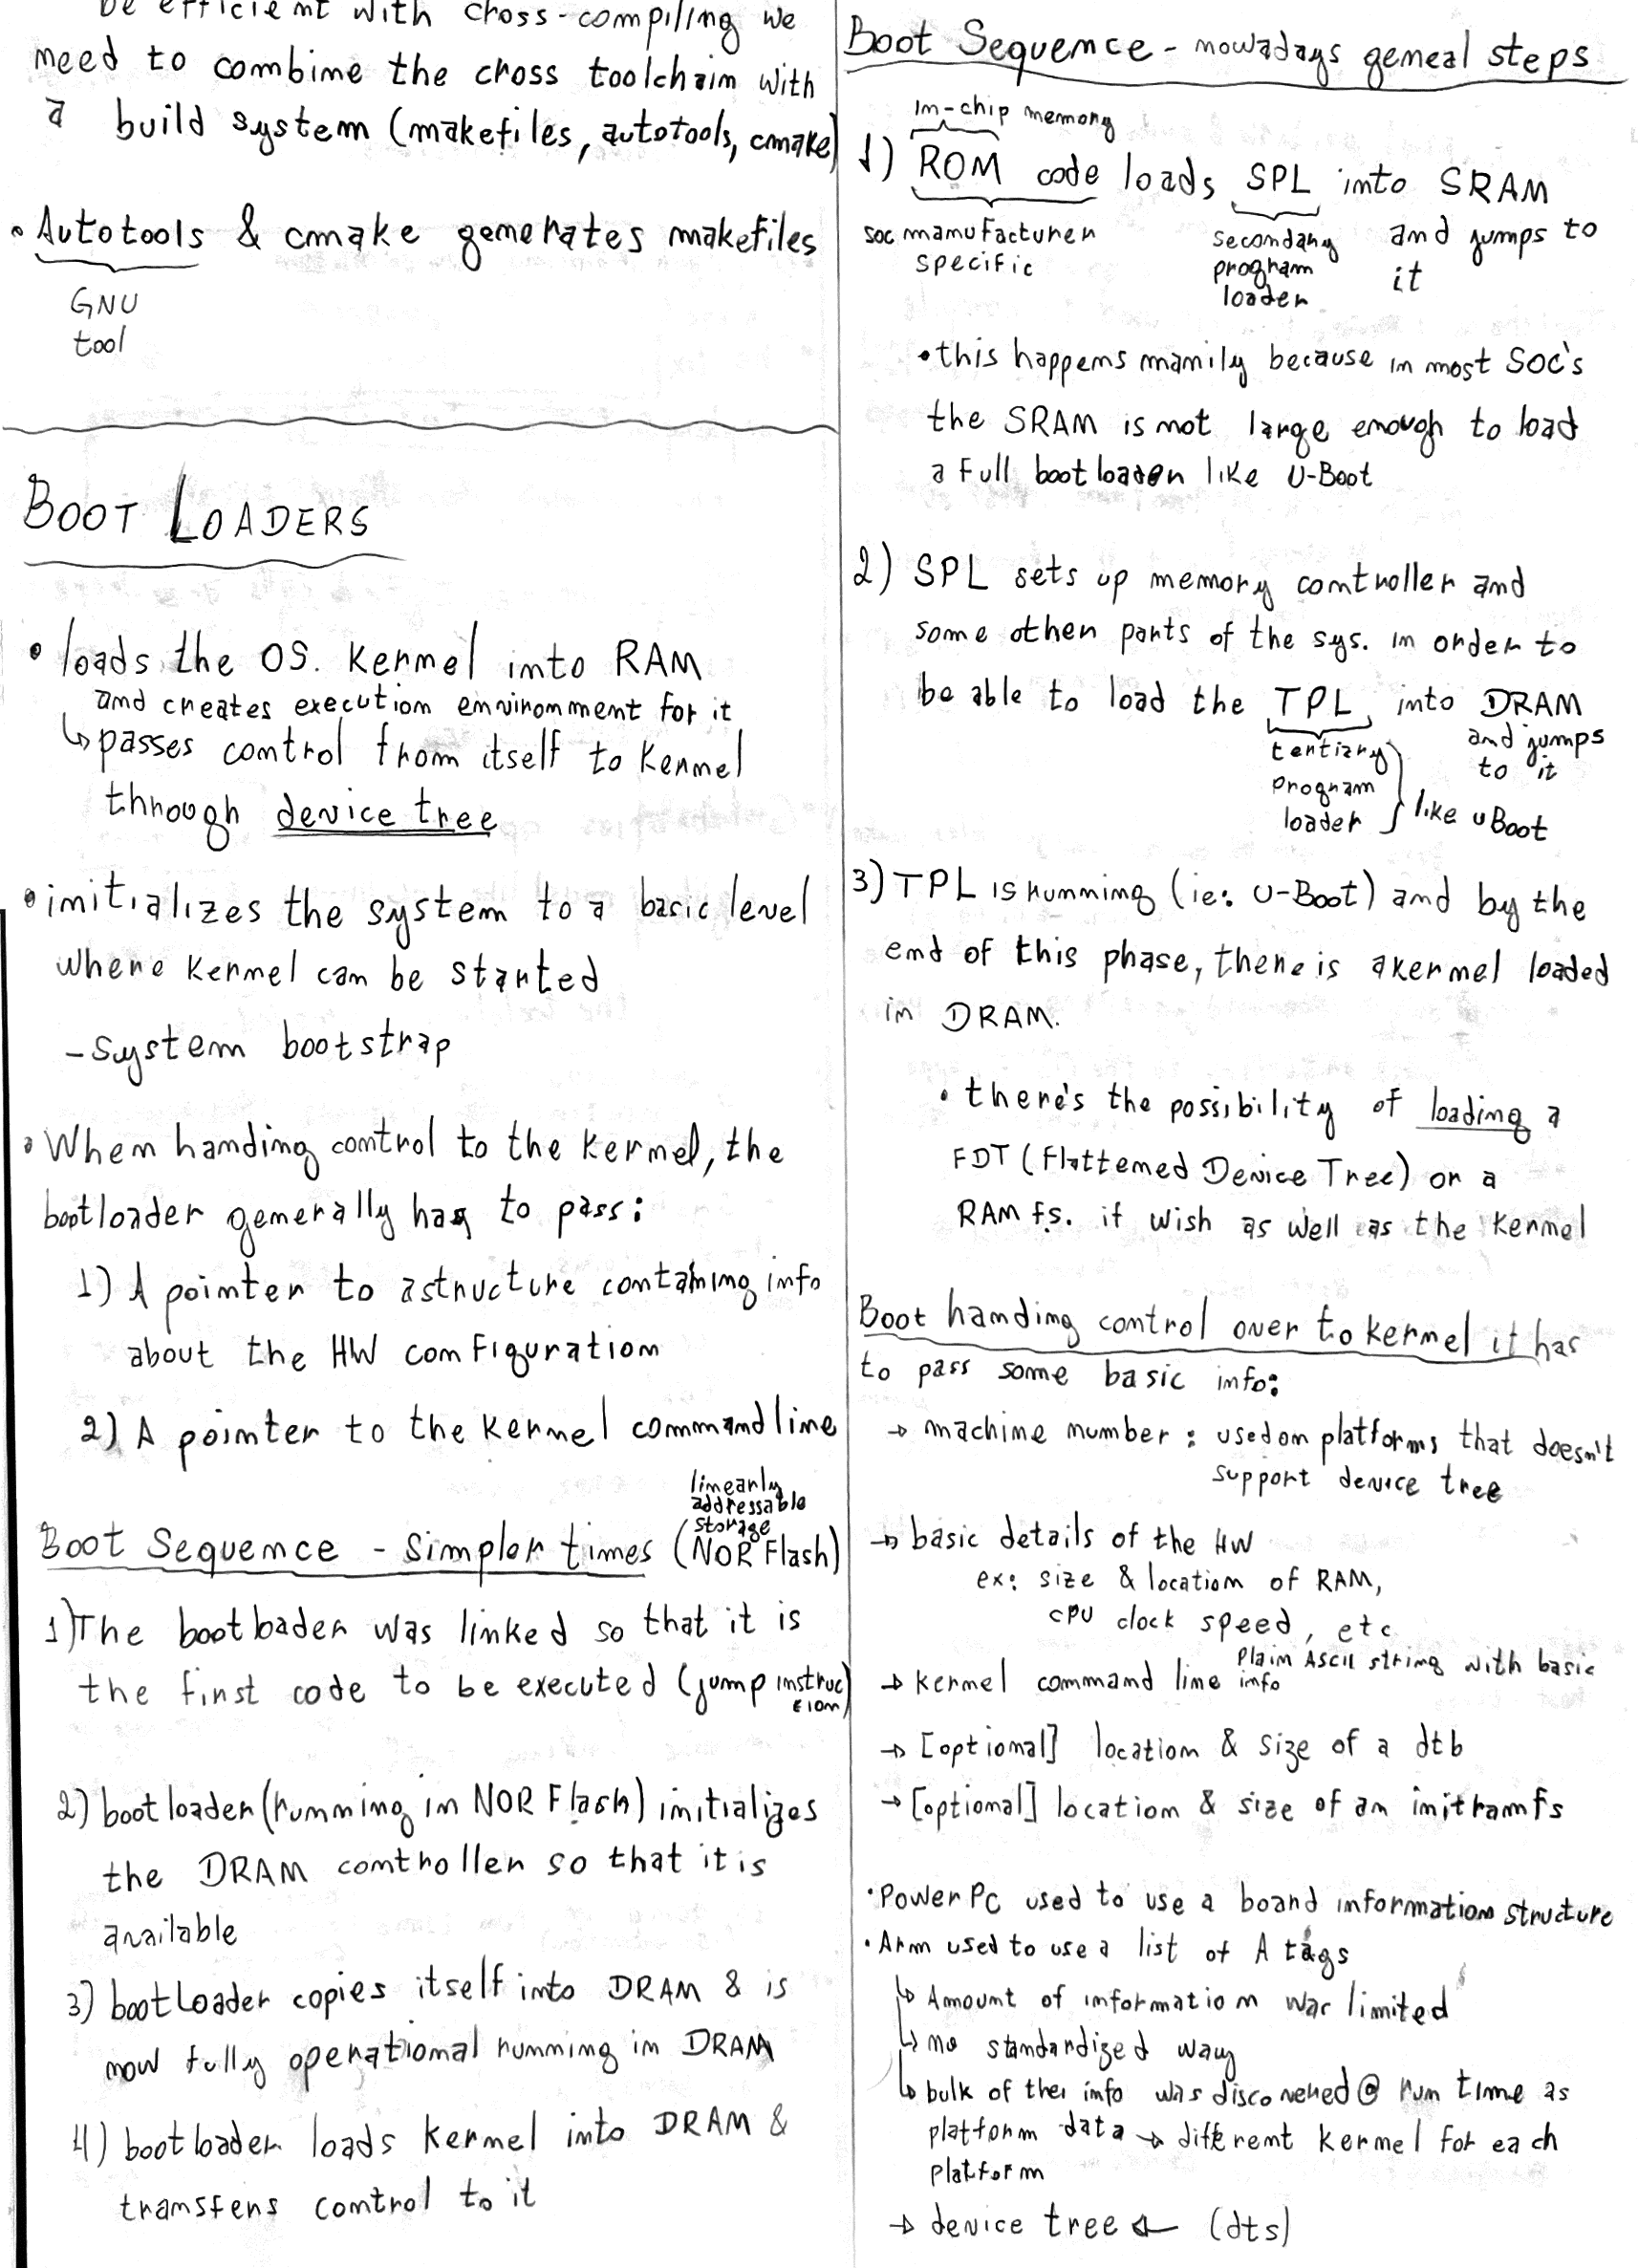 be efficient with cross-compiling we
need to combine the cross toolchain with
a build system (makefiles, autotools, cmake)
• Autotools & cmake generates makefiles
GNU
tool
BOOT LOADERS
• loads the OS. Kernel into RAM
and creates execution environment for it
↳ passes control from itself to Kernel
through device tree
• initializes the system to a basic level
where Kernel can be started
- System bootstrap
• When handing control to the Kernel, the
bootloader generally has to pass:
1) A pointer to a structure containing info
about the HW configuration
2) A pointer to the Kernel command line
linearly
addressable
storage
Boot Sequence - Simpler times (NOR Flash)
1) The bootloader was linked so that it is
the first code to be executed (jump instruc
tion)
2) bootloader (running in NOR Flash) initializes
the DRAM controller so that it is
available
3) bootloader copies itself into DRAM & is
now fully operational running in DRAM
4) bootloader loads Kernel into DRAM &
transfers control to it
Boot Sequence - nowadays geneal steps
in-chip memory
1) ROM code loads SPL into SRAM
and jumps to
it
soc manufacturer
specific
secondary
program
loader
• this happens mainily because in most SOC's
the SRAM is not large enough to load
a Full bootloader like U-Boot
2) SPL sets up memory controller and
some other parts of the sys. in order to
be able to load the TPL into DRAM
and jumps
to it
tertiary
program
loader
like uBoot
3) TPL is running (ie: U-Boot) and by the
end of this phase, there is a kernel loaded
in DRAM.
• there's the possibility of loading a
FDT (Flattened Device Tree) or a
RAM fs. if wish as well as the kernel
Boot handing control over to kernel it has
to pass some basic info:
→ machine number: used on platforms that doesn't
support device tree
→ basic details of the HW
ex: size & location of RAM,
CPU clock speed, etc
Plain Ascii string with basic
→ kernel command line info
→ [optional] location & size of a dtb
→ [optional] location & size of an initramfs
• Power PC used to use a board information structure
• Arm used to use a list of A tags
↳ Amount of information was limited
↳ no standardized way
↳ bulk of the info was discovered @ run time as
platform data → different kernel for each
platform
→ device tree ← (dts)